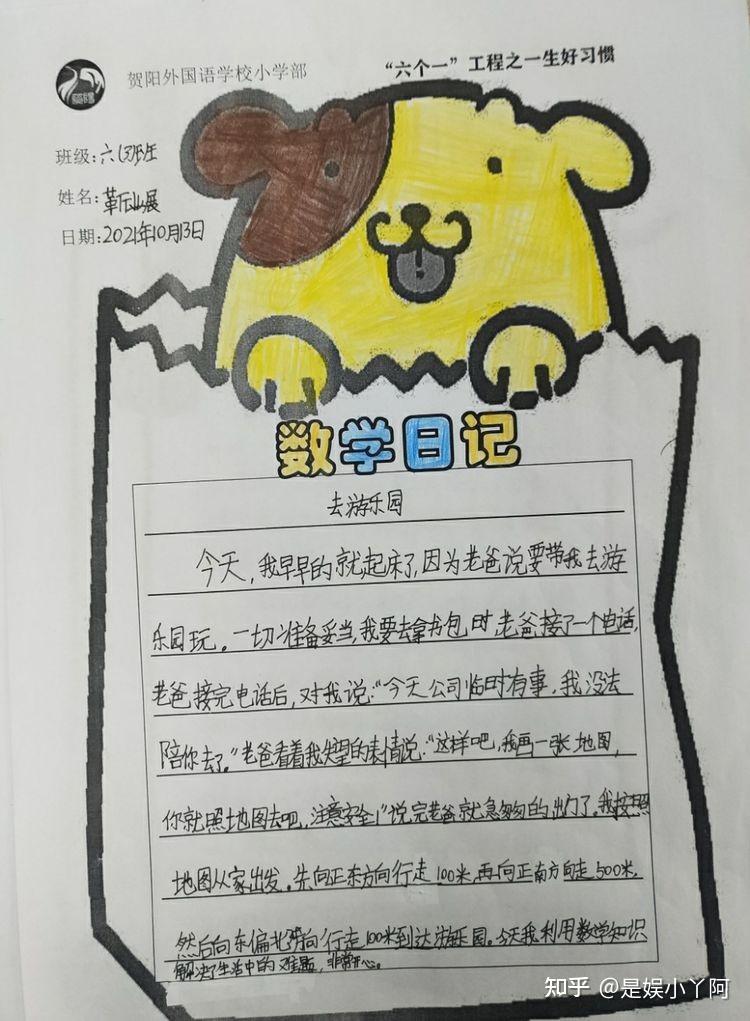 贺阳外国语学校小学部
“六个一”工程之一生好习惯
班级:六(3)班
姓名:
日期:2021年10月13日
数学日记
去游乐园
今天,我早早的就起床了,因为老爸说要带我去游
乐园玩。一切准备妥当,我要去拿书包时,老爸接了一个电话,
老爸接完电话后,对我说:“今天公司临时有事,我没法
陪你去了。”老爸看着我失望的表情说:“这样吧,我画一张地图,
你就照地图去吧,注意安全!”说完老爸就急匆匆的出门了。我按照
地图从家出发。先向正东方向行走100米,再向正南方向走500米,
然后向东偏北 方向行走100米到达游乐园。今天我利用数学知识
解决了生活中的难题,非常开心。
知乎 @是娱小丫阿